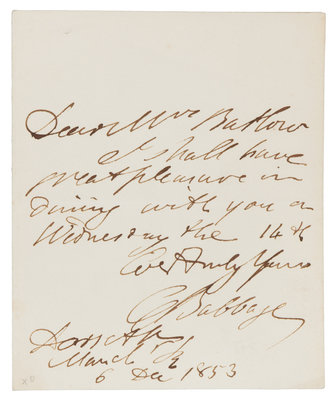 Dear Mrs Barlow
I shall have
great pleasure in
dining with you on
Wednesday the 14th
Ever truly Yours
C Babbage
Dorset St
Manch Sq
6 Dec 1853